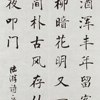 酒浑丰年留客
柳暗花明又一
简朴古风存从
夜叩门
陆游诗